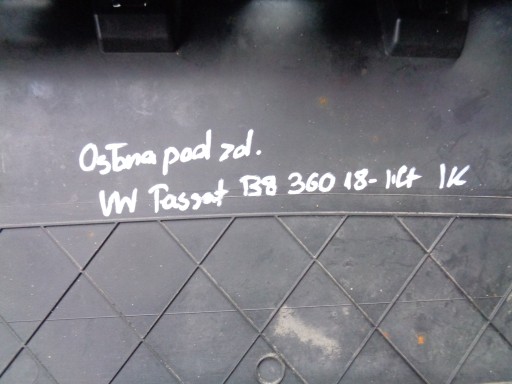 Osłona pod zd.
VW Passat B8 3G0 18- lift IK